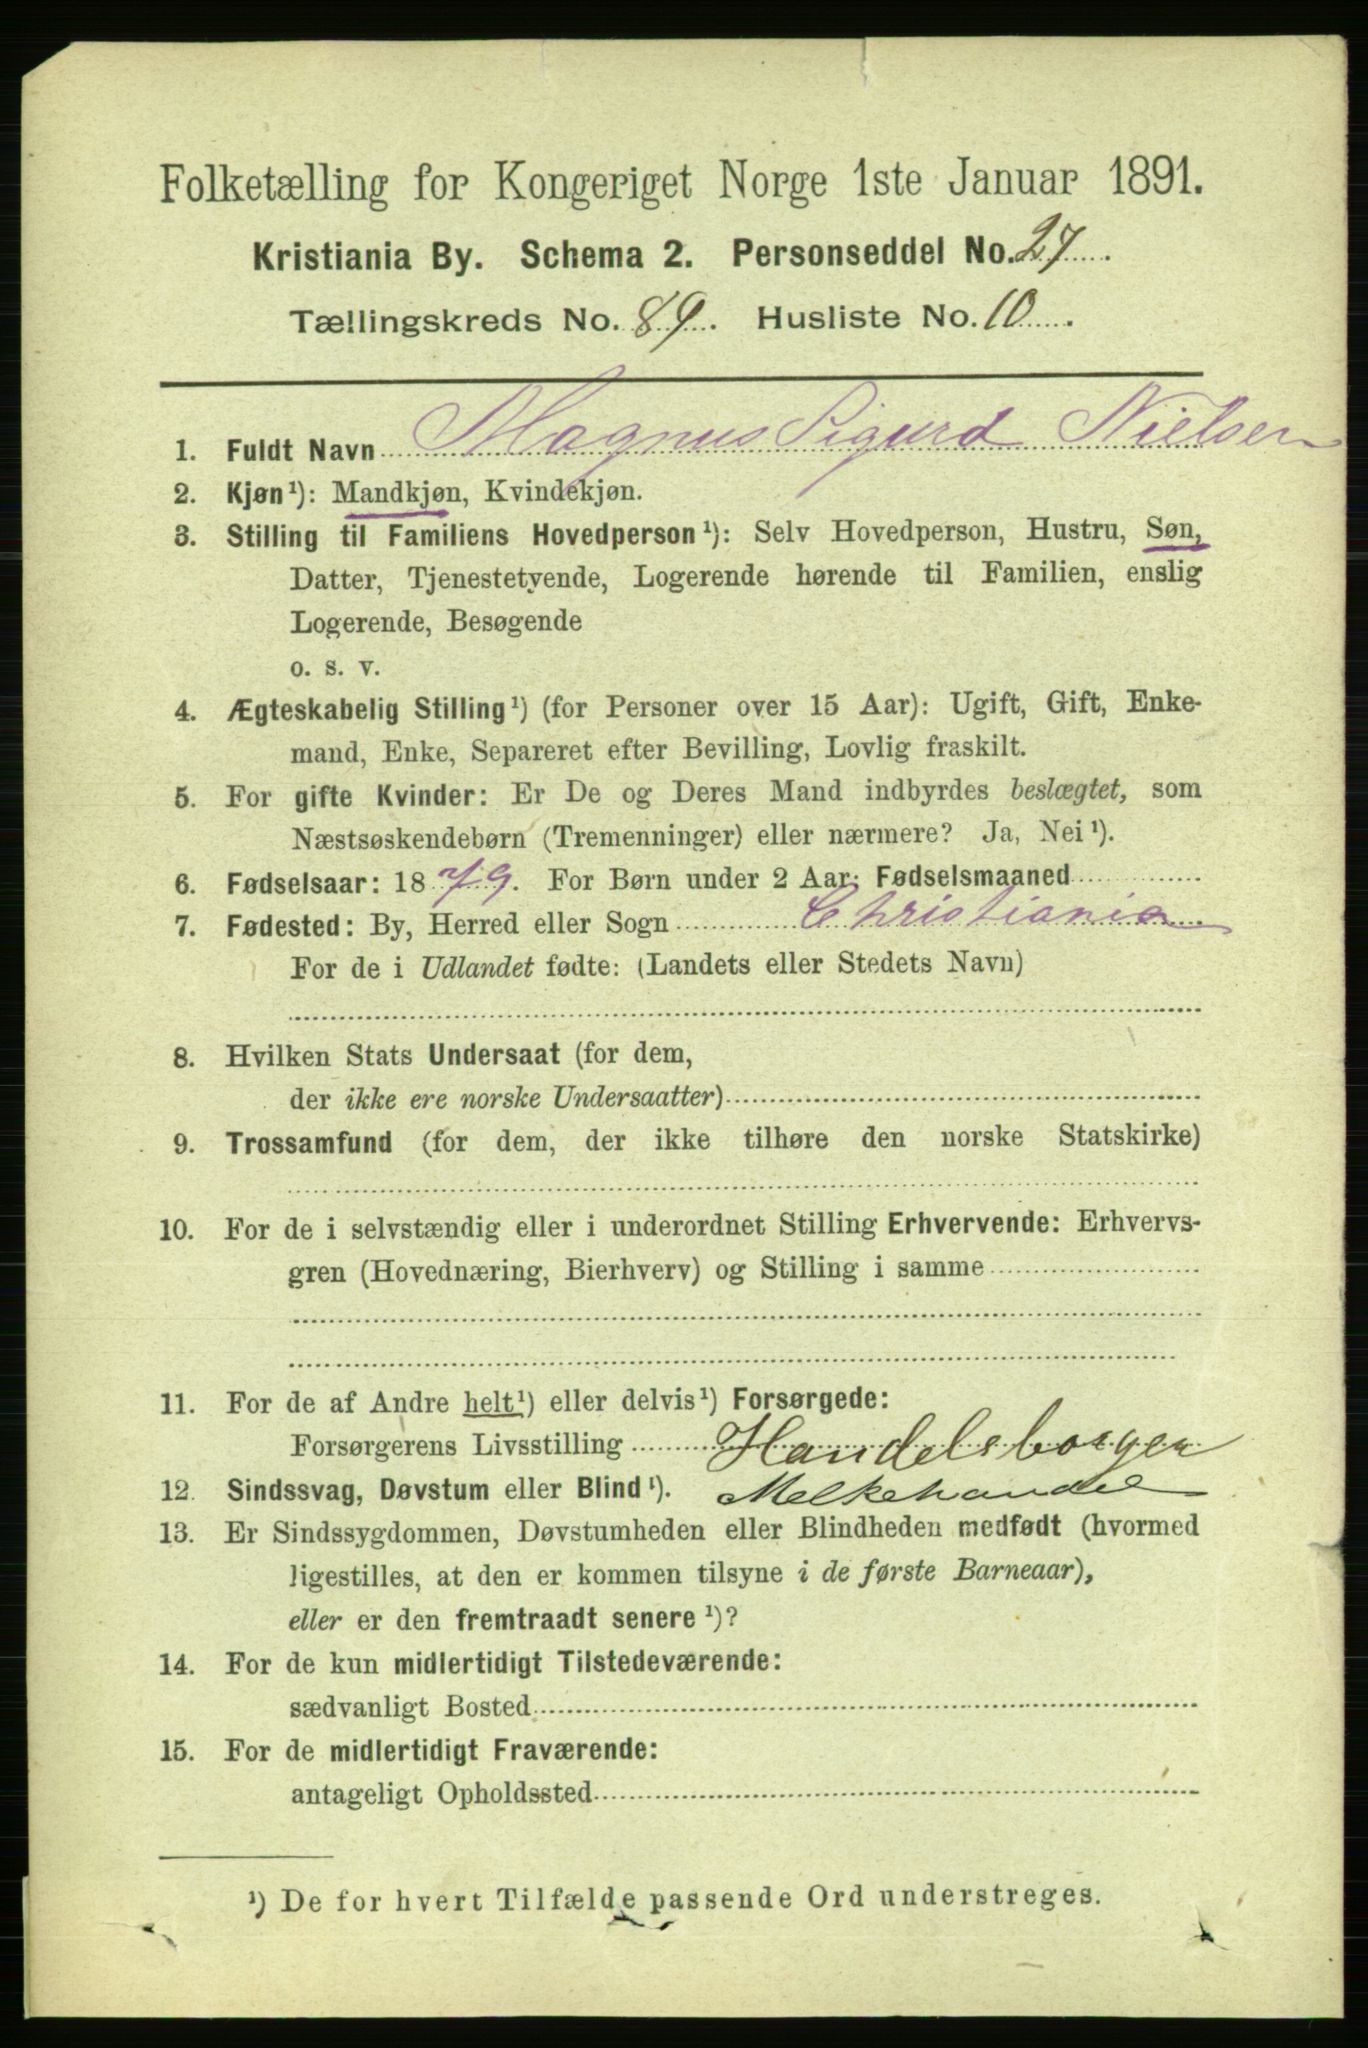 Folketælling for Kongeriget Norge 1ste Januar 1891.
Kristiania By. Schema 2. Personseddel No. 27
Tællingskreds No. 89. Husliste No. 10.
1. Fuldt Navn Magnus Sigurd Nielsen
2. Kjøn¹): Mandkjøn, Kvindekjøn.
3. Stilling til Familiens Hovedperson¹): Selv Hovedperson, Hustru, Søn,
Datter, Tjenestetyende, Logerende hørende til Familien, enslig
Logerende, Besøgende
o. s. v.
4. Ægteskabelig Stilling¹) (for Personer over 15 Aar): Ugift, Gift, Enke-
mand, Enke, Separeret efter Bevilling, Lovlig fraskilt.
5. For gifte Kvinder: Er De og Deres Mand indbyrdes beslægtet, som
Næstsøskendebørn (Tremenninger) eller nærmere? Ja, Nei¹).
6. Fødselsaar: 1879. For Børn under 2 Aar: Fødselsmaaned
7. Fødested: By, Herred eller Sogn Christiania
For de i Udlandet fødte: (Landets eller Stedets Navn)
8. Hvilken Stats Undersaat (for dem,
der ikke ere norske Undersaatter)
9. Trossamfund (for dem, der ikke tilhøre den norske Statskirke)
10. For de i selvstændig eller i underordnet Stilling Erhvervende: Erhvervs-
gren (Hovednæring, Bierhverv) og Stilling i samme
11. For de af Andre helt¹) eller delvis¹) Forsørgede:
Forsørgerens Livsstilling Handelsborger
12. Sindssvag, Døvstum eller Blind¹). Melkehandel
13. Er Sindssygdommen, Døvstumheden eller Blindheden medfødt (hvormed
ligestilles, at den er kommen tilsyne i de første Barneaar),
eller er den fremtraadt senere¹)?
14. For de kun midlertidigt Tilstedeværende:
sædvanligt Bosted
15. For de midlertidigt Fraværende:
antageligt Opholdssted
¹) De for hvert Tilfælde passende Ord understreges.